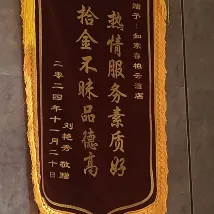 赠予：如家春艳云酒店
热情服务素质好
拾金不昧品德高
刘艳秀 敬赠
二零二四年十一月二十日